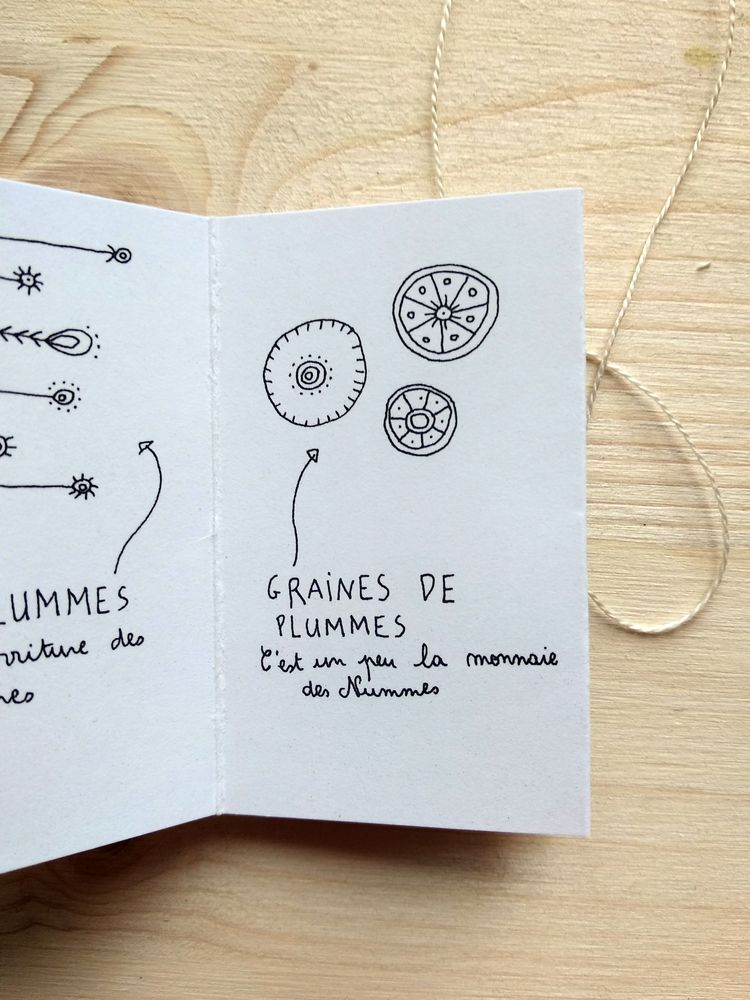 LUMMES
rriture des
mes
GRAiNES DE
PLUMMES
C'est un peu la monnaie
des Nummes